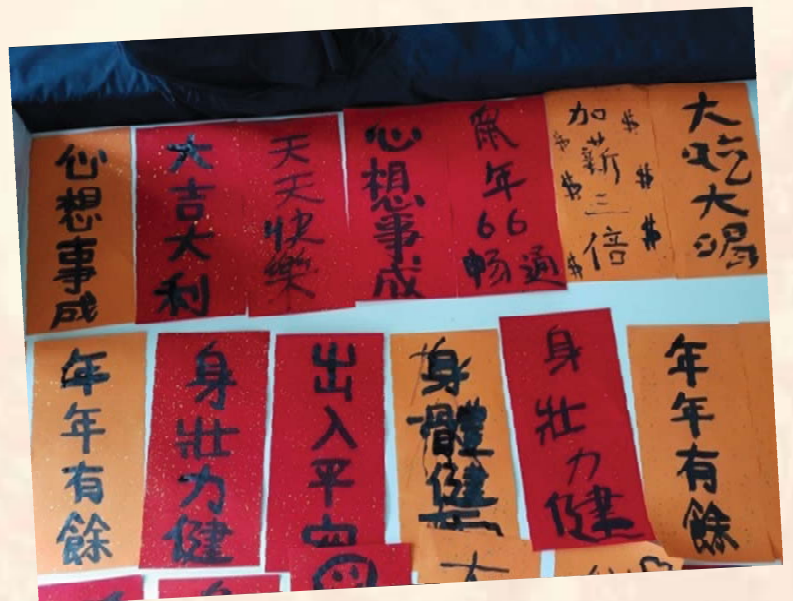 心想事成
大吉大利
天天快樂
心想事成
鼠年66暢通
加薪三倍
$ $ $ $ $ $
大吃大喝
年年有餘
身壯力健
出入平安
身體健
身壯力健
年年有餘
大